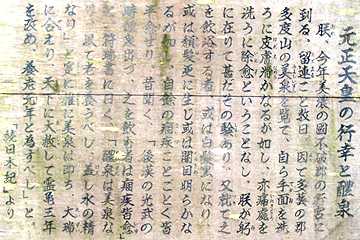 元正天皇の行幸と醴泉
朕、今年美濃の國不破郡の行宮に
到る、留連すること数日、因て多芸の郡
多度山の美泉を覧て、自ら手面を洗
ろに皮膚滑かなるが如し、亦痛處を
洗うに除愈ということなし、朕が躬
に在りて甚だその験あり、又就て之
を飲浴する者、或は白髪黒になり
或は頽髪更に生じ或は闇目明らかな
るが如し、自餘の痼疾ことごとく皆
平愈せり、昔聞く、「後漢の光武の
時醴泉出づ、之を飲む者は痼疾皆愈
符瑞書に曰く、「醴泉は美泉な
り、以て老を養うべし、盖し水の精
なり」と寔に惟に美泉は即ち大瑞
に合えり、天下に大赦して霊亀三年
を改め、養老元年と為すべし」と、
「続日本紀」より